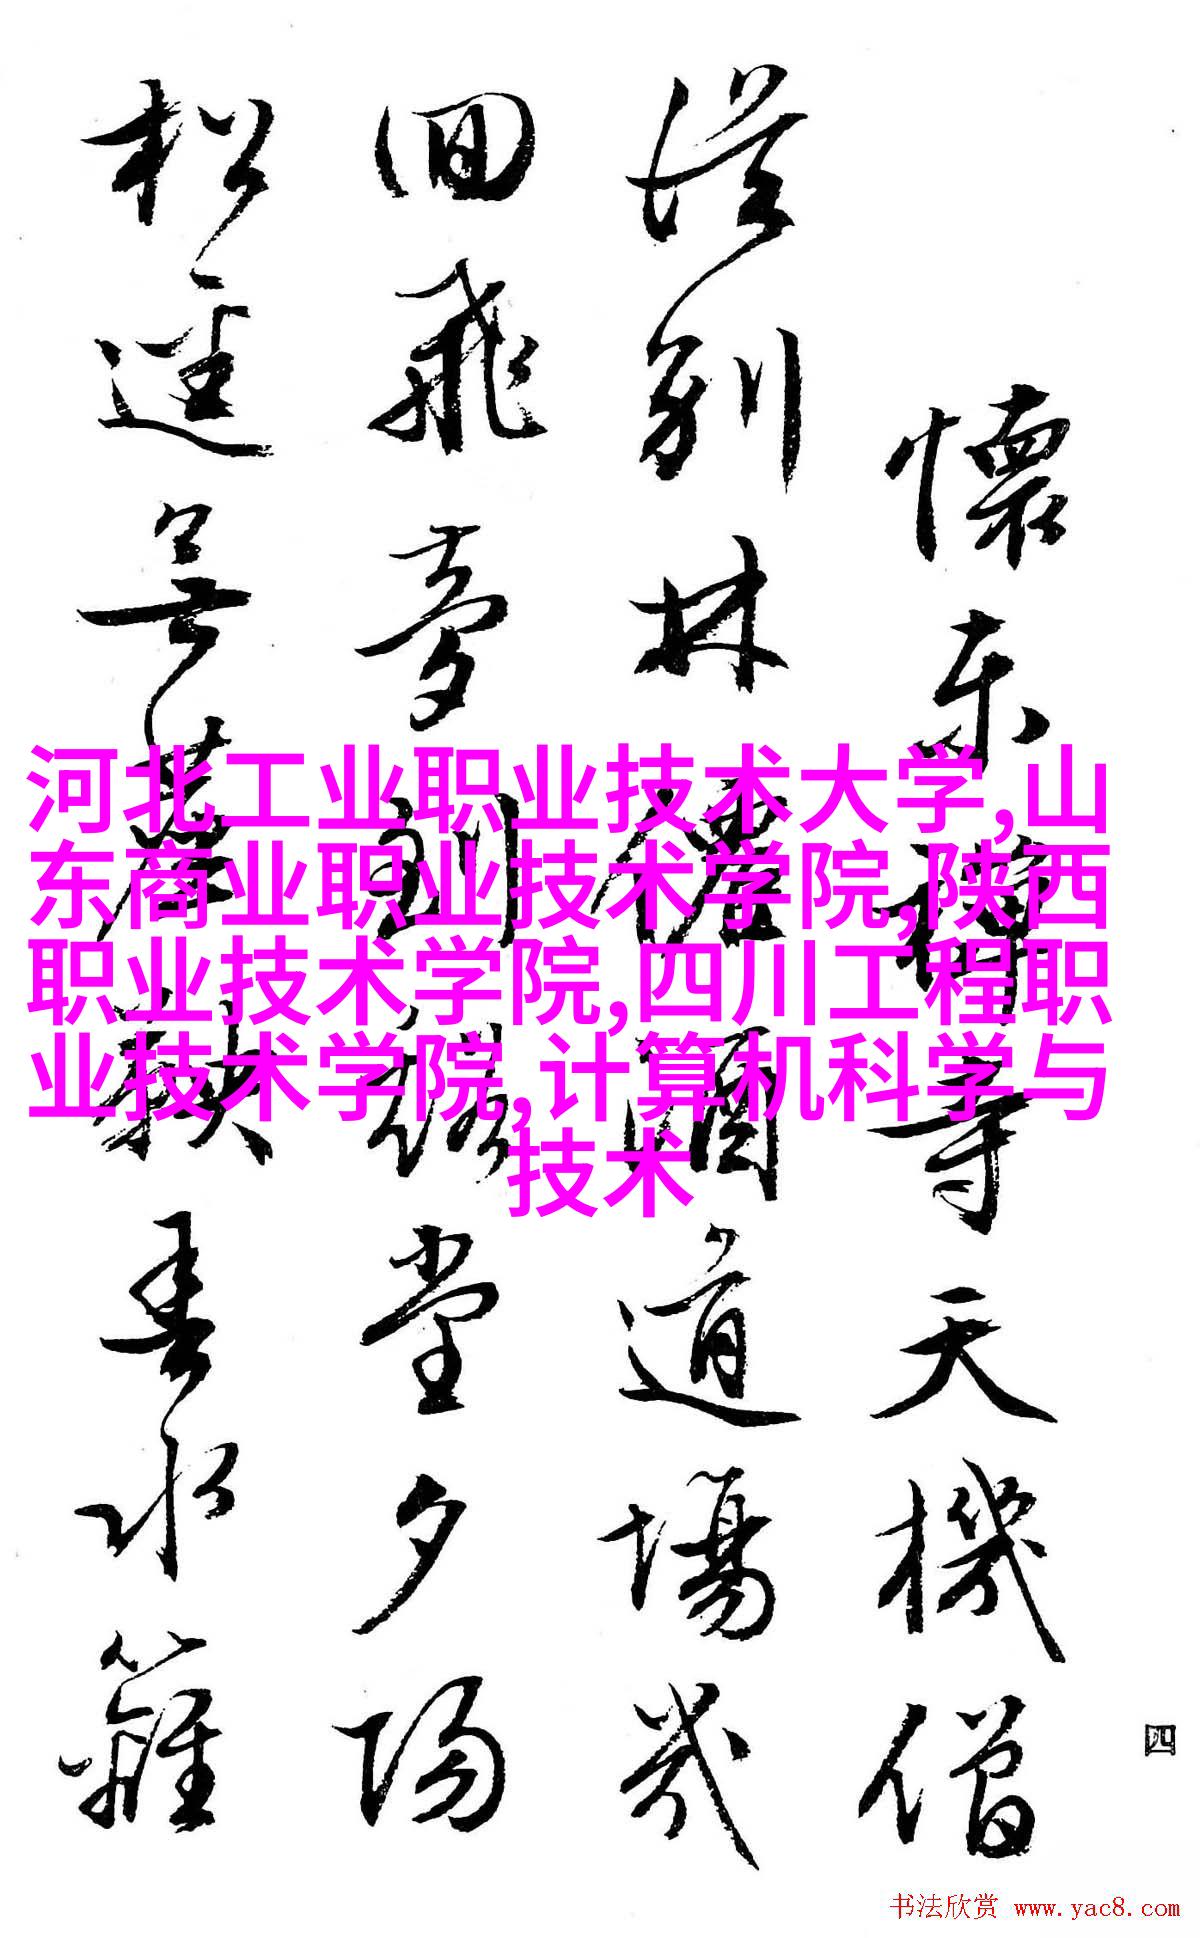 河北工业职业技术大学,山
东商业职业技术学院,陕西
职业技术学院,四川工程职
业技术学院,计算机科学与
技术
懷東禪寺天機僧
從別林道場幾
回飛夢到堂夕陽
松逕無春水籬
四
书法欣赏 www.yac8.com